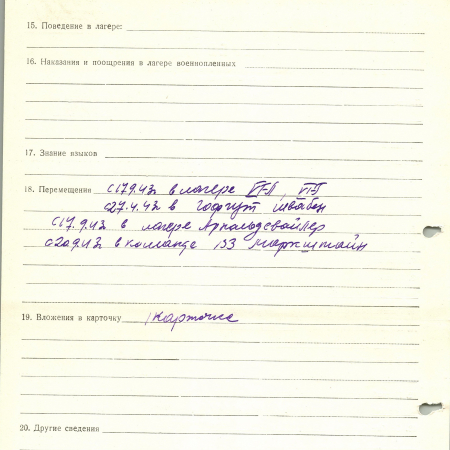 15. Поведение в лагере:
16. Наказания и поощрения в лагере военнопленных
17. Знание языков
18. Перемещение с 17.9.42 в лагере VI-А, VI-
с 27.4.42 в швабен
с 17.9.42 в лагере Арнольдсвайлер
с 20.9.42 в команде 133 Маркштайн
19. Вложения в карточку 1 карточка
20. Другие сведения